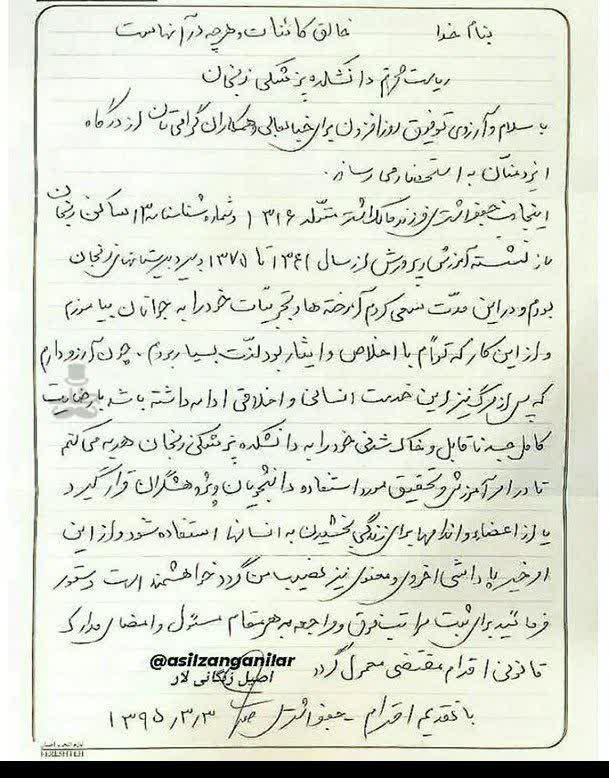 بنام خدا خالق کائنات و هرچه در آنهاست
ریاست محترم دانشکده پزشکی زنجان
با سلام و آرزوی توفیق روزافزون برای جنابعالی و همکاران گرامی‌تان از درگاه
ایزد منان به استحضار می رساند.
اینجانب جعفر اشتری فرزند مالک اشتر متولد ۱۳۱۶ و شماره شناسنامه ۱۳ ساکن زنجان
بازنشسته آموزش و پرورش از سال ۱۳۴۱ تا ۱۳۷۵ دبیر دبیرستانهای زنجان
بودم و در این مدت سعی کردم آموخته ها و تجربیات خود را به جوانان بیاموزم
و از این کار که توأم با اخلاص و ایثار بود لذت بسیار بردم. چون آرزو دارم
که پس از مرگ نیز این خدمت انسانی و اخلاقی ادامه داشته باشد با رضایت
کامل جسد ناقابل و خاک شدنی خود را به دانشکده پزشکی زنجان هدیه می کنم
تا در امر آموزش و تحقیق مورد استفاده دانشجویان و پژوهشگران قرار گیرد
یا از اعضاء و اندامها برای زندگی بخشیدن به انسانها استفاده شود و از این
امر خیر پاداشی اخروی و معنوی نیز نصیب من گردد خواهشمند است دستور
فرمائید برای ثبت مراتب فوق و مراجعه به هر مقام مسئول و امضای مدارک
قانونی اقدام مقتضی معمول گردد
@asilzanganilar
اصیل زنگانی لار
با تقدیم احترام - جعفر اشتری ۱۳۹۵/۳/۳
FERESHTEH